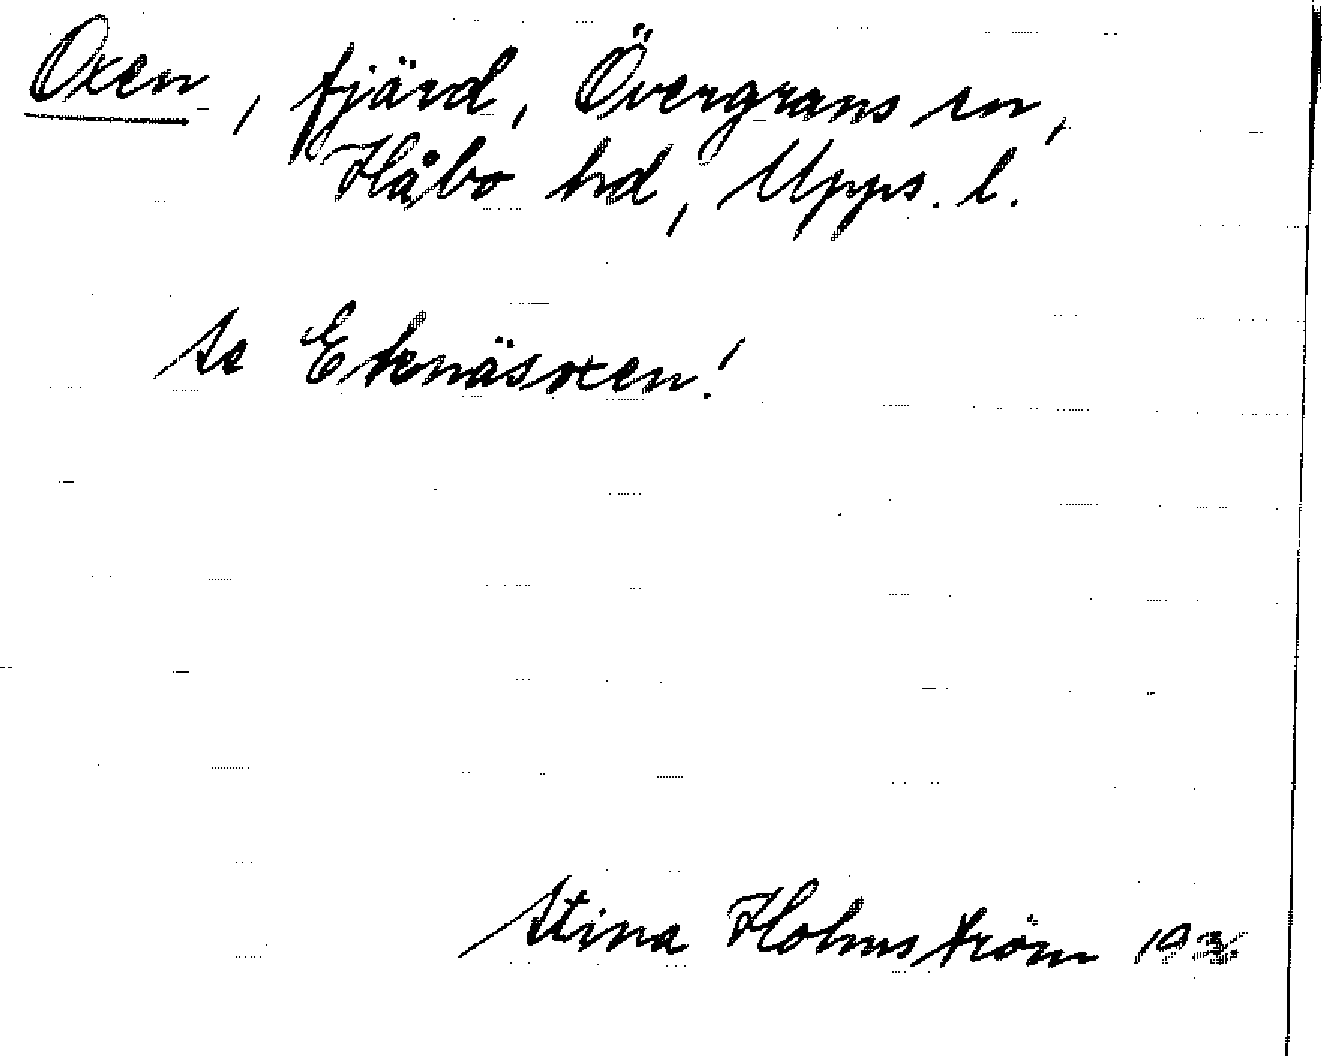 Oxen, fjärd, Övergrans sn,
Håbo hd, Upps. l.
Se Eknäsoxen!
Stina Holmström